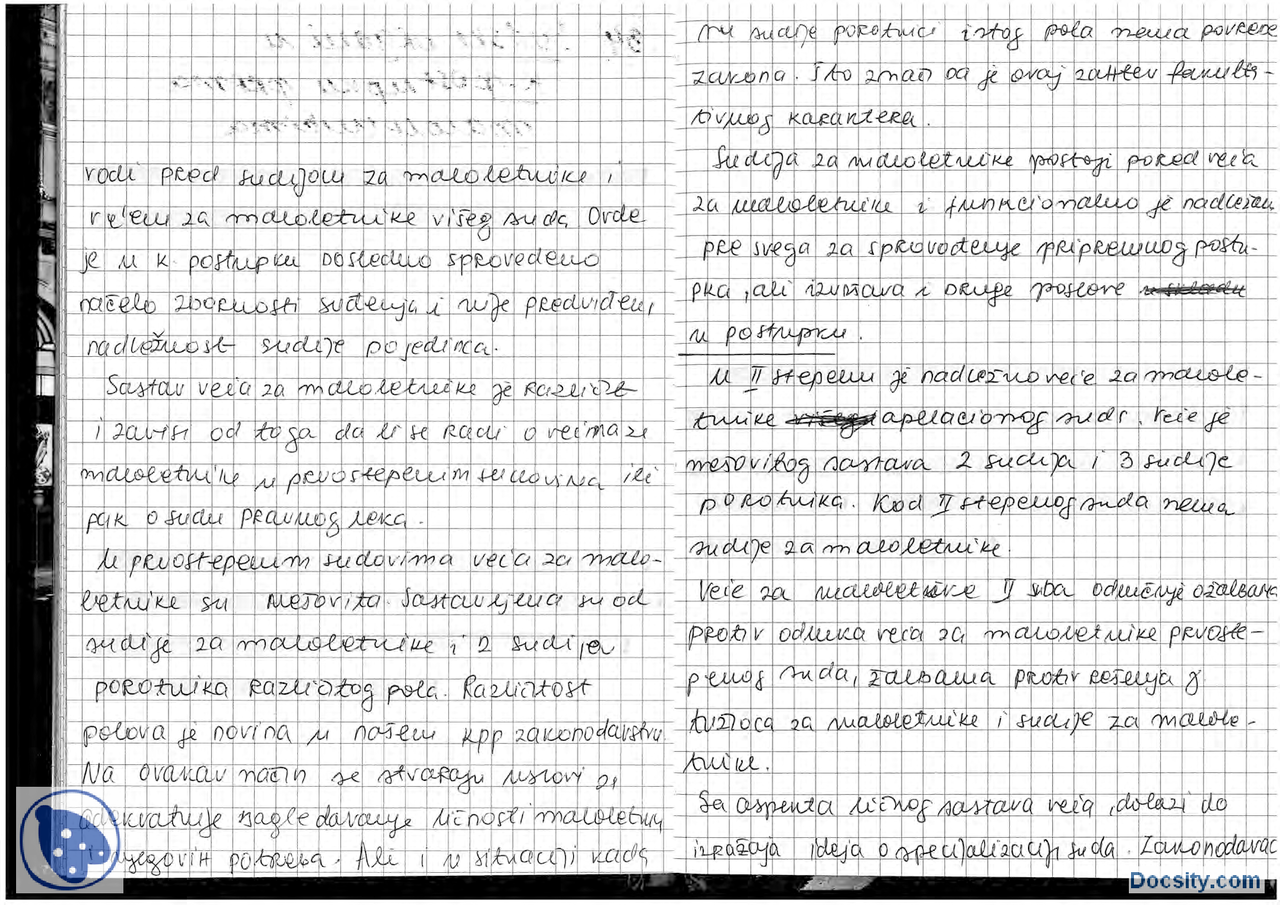 vodi pred sudijom za maloletnike i
većem za maloletnike višeg suda. Ovde
je u k. postupku dosledno sprovedeno
načelo zbornosti suđenja i nije predviđena
nadležnost sudije pojedinca.
Sastav veća za maloletnike je različit
i zavisi od toga da li se radi o većima za
maloletnike u prvostepenim sudovima ili
pak o sudu pravnog leka.
U prvostepenim sudovima veća za malo-
letnike su mešovita. Sastavljena su od
sudije za maloletnike i 2 sudije
porotnika različitog pola. Različitost
polova je novina u našem kpp zakonodavstvu
Na ovakav način se stvaraju uslovi za
adekvatnije sagledavanje ličnosti maloletnika
i njegovih potreba. Ali i u situaciji kada
su sudije porotnici istog pola nema povrede
zakona. Što znači da je ovaj zahtev fakulta-
tivnog karaktera.
Sudija za maloletnike postoji pored veća
za maloletnike i funkcionalno je nadležan
pre svega za sprovođenje pripremnog postu-
pka, ali izvršava i druge poslove
u postupku.
U II stepenu je nadležno veće za malole-
tnike apelacionog suda. Veće je
mešovitog sastava 2 sudija i 3 sudije
porotnika. Kod II stepenog suda nema
sudije za maloletnike.
Veće za maloletnike II odlučuje o žalbama
protiv odluka veća za maloletnike prvoste-
penog suda, žalbama protiv rešenja
tužioca za maloletnike i sudije za malole-
tnike.
Sa aspekta ličnog sastava veća, dolazi do
izražaja ideja o specijalizaciji suda. Zakonodavac
Docsity.com